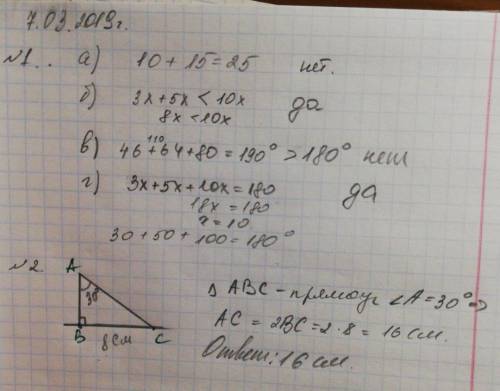 7.03.2019г.
№1.. а) 10 + 15 = 25 нет.
б) 3x+5x < 10x да
8x < 10x
110
в) 46+64+80 = 190° > 180° нет
г) 3x+5x+10x = 180 да
18x = 180
x = 10
30 + 50 + 100 = 180°
№2 A
30°
B C
8 см
Δ ABC - прямоуг ∠A = 30° ⇒
AC = 2BC = 2·8 = 16 см.
Ответ: 16 см.